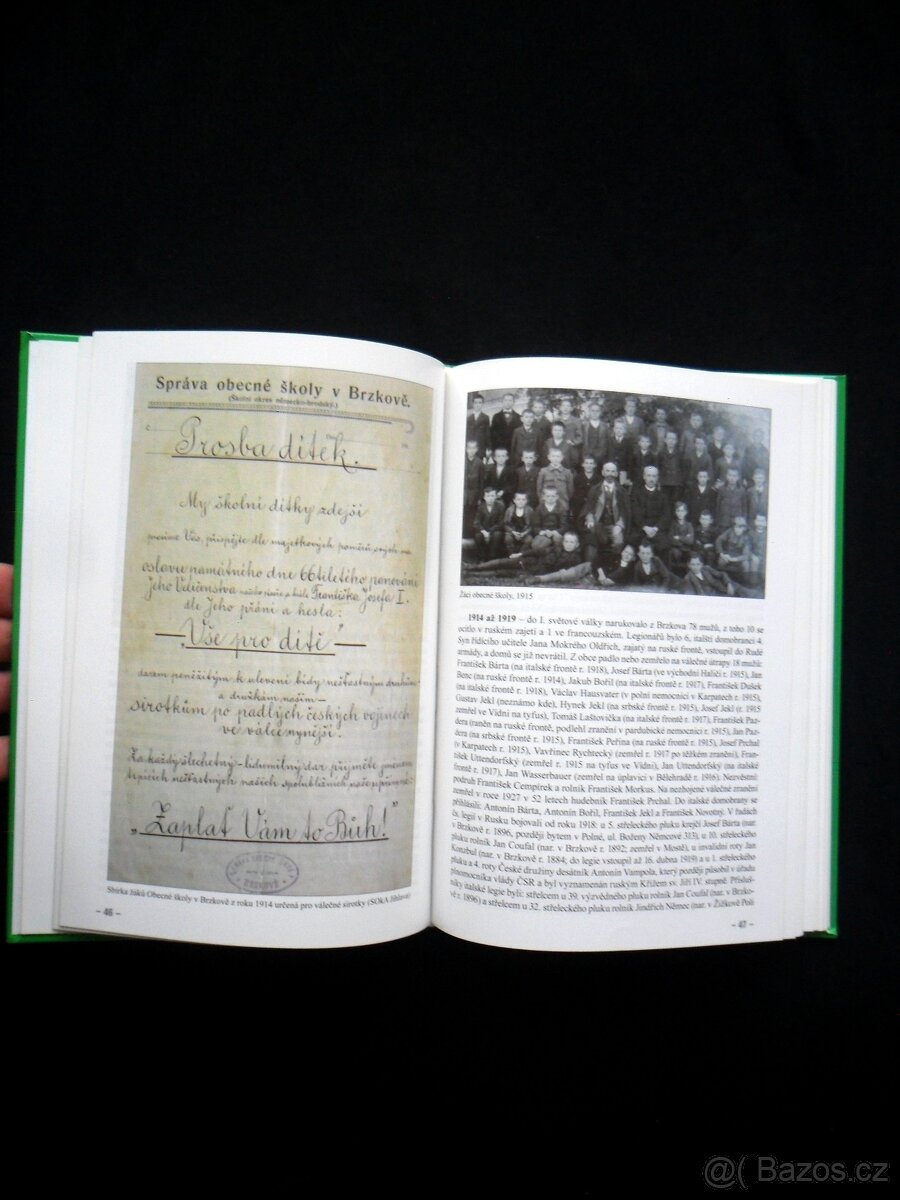 Správa obecné školy v Brzkově.
(Školní okres německo-brodský.)
Prosba dítek.
My školní dítky zdejší
prosíme Vás, přispějte dle majetkových poměrů svých na
oslavu památného dne 66tiletého panování
Jeho Veličenstva císaře a krále Františka Josefa I.
dle Jeho přání a hesla:
„Vše pro dítě"
darem peněžitým k ulevení bídy nešťastným druhům
a družkám našim –
sirotkům po padlých českých vojínech
ve válce nynější.
Za každý šlechetný – lidumilný dar přijměte jmenem
trpících nešťastných našich spolubližních naše upřímné:
„Zaplať Vám to Bůh!"
BRZKOVĚ
Sbírka žáků Obecné školy v Brzkově z roku 1914 určená pro válečné sirotky (SOkA Jihlava)
– 46 –
Žáci obecné školy, 1915
1914 až 1919 – do I. světové války narukovalo z Brzkova 78 mužů, z toho 10 se
ocitlo v ruském zajetí a 1 ve francouzském. Legionářů bylo 6, italští domobranci 4.
Syn řídícího učitele Jana Mokrého Oldřich, zajatý na ruské frontě, vstoupil do Rudé
armády, a domů se již nevrátil. Z obce padlo nebo zemřelo na válečné útrapy 18 mužů:
František Bárta (na italské frontě r. 1918), Josef Bárta (ve východní Haliči r. 1915), Jan
Benc (na ruské frontě r. 1914), Jakub Bořil (na italské frontě r. 1917), František Dušek
(na italské frontě r. 1918), Václav Hausvater (v polní nemocnici v Karpatech r. 1915),
Gustav Jekl (neznámo kde), Hynek Jekl (na srbské frontě r. 1915), Josef Jekl (r. 1915
zemřel ve Vídni na tyfus), Tomáš Laštovička (na italské frontě r. 1917), František Paz-
dera (raněn na ruské frontě, podlehl zranění v pardubické nemocnici r. 1915), Jan Paz-
dera (na srbské frontě r. 1915), František Peřina (na ruské frontě r. 1915), Josef Prchal
(v Karpatech r. 1915), Vavřinec Rychtecký (zemřel r. 1917 po těžkém zranění), Fran-
tišek Uttendorfský (zemřel r. 1915 na tyfus ve Vídni), Jan Uttendorfský (na italské
frontě r. 1917), Jan Wasserbauer (zemřel na úplavici v Bělehradě r. 1916). Nezvěstní:
podruh František Cempírek a rolník František Morkus. Na nezhojené válečné zranění
zemřel v roce 1927 v 52 letech hudebník František Prchal. Do italské domobrany se
přihlásili: Antonín Bárta, Antonín Bořil, František Jekl a František Novotný. V řadách
čs. legií v Rusku bojovali od roku 1918: u 5. střeleckého pluku krejčí Josef Bárta (nar.
v Brzkově r. 1896, později bytem v Polné, ul. Boženy Němcové 313), u 10. střeleckého
pluku rolník Jan Coufal (nar. v Brzkově r. 1892; zemřel v Mostě), u invalidní roty Jan
Konzbul (nar. v Brzkově r. 1884; do legie vstoupil až 16. dubna 1919) a u 1. střeleckého
pluku a 4. roty České družiny desátník Antonín Vampola, který později působil v úřadu
plnomocníka vlády ČSR a byl vyznamenán ruským Křížem sv. Jiří IV. stupně. Přísluš-
níky italské legie byli: střelcem u 39. výzvědného pluku rolník Jan Coufal (nar. v Brzko-
vě r. 1896) a střelcem u 32. střeleckého pluku rolník Jindřich Němec (nar. v Žižkově Poli
– 47 –
@( Bazos.cz